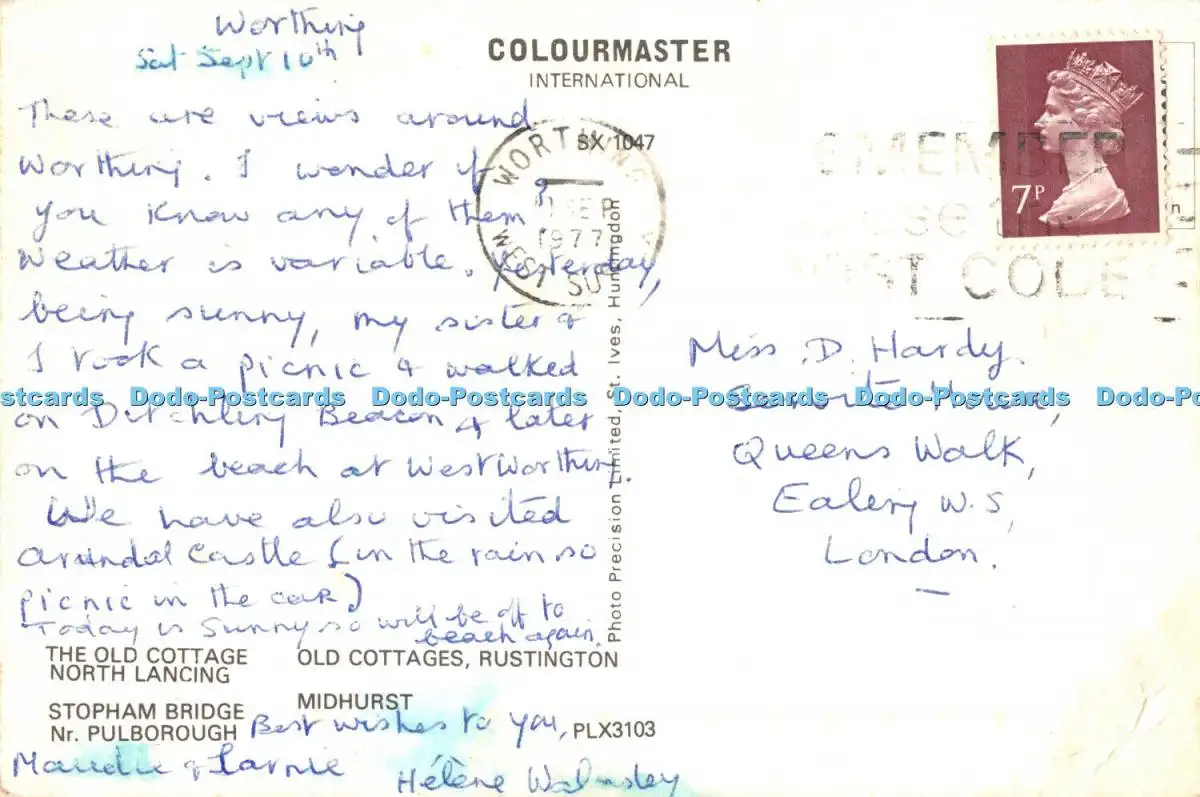 Worthing
Sat Sept 10th
These are views around
Worthing. I wonder if
you know any of them?
Weather is variable. Yesterday,
being sunny, my sister &
I took a picnic & walked
on Ditchling Beacon & later
on the beach at West Worthing.
We have also visited
Arundel Castle (in the rain so
picnic in the car)
Today is Sunny so will be off to
beach again.
Best wishes to you,
Hélène Walmsley
THE OLD COTTAGE
NORTH LANCING
OLD COTTAGES, RUSTINGTON
STOPHAM BRIDGE
Nr. PULBOROUGH
MIDHURST
PLX3103
COLOURMASTER
INTERNATIONAL
SX 1047
Photo Precision Limited, St. Ives, Huntingdon
WORTHING
SEP
1977
WEST SUSSEX
REMEMBER
USE THE
POST CODE
7P
Miss D. Hardy.
Queens Walk,
Ealing W.5,
London.
Dodo-Postcards Dodo-Postcards Dodo-Postcards Dodo-Postcards